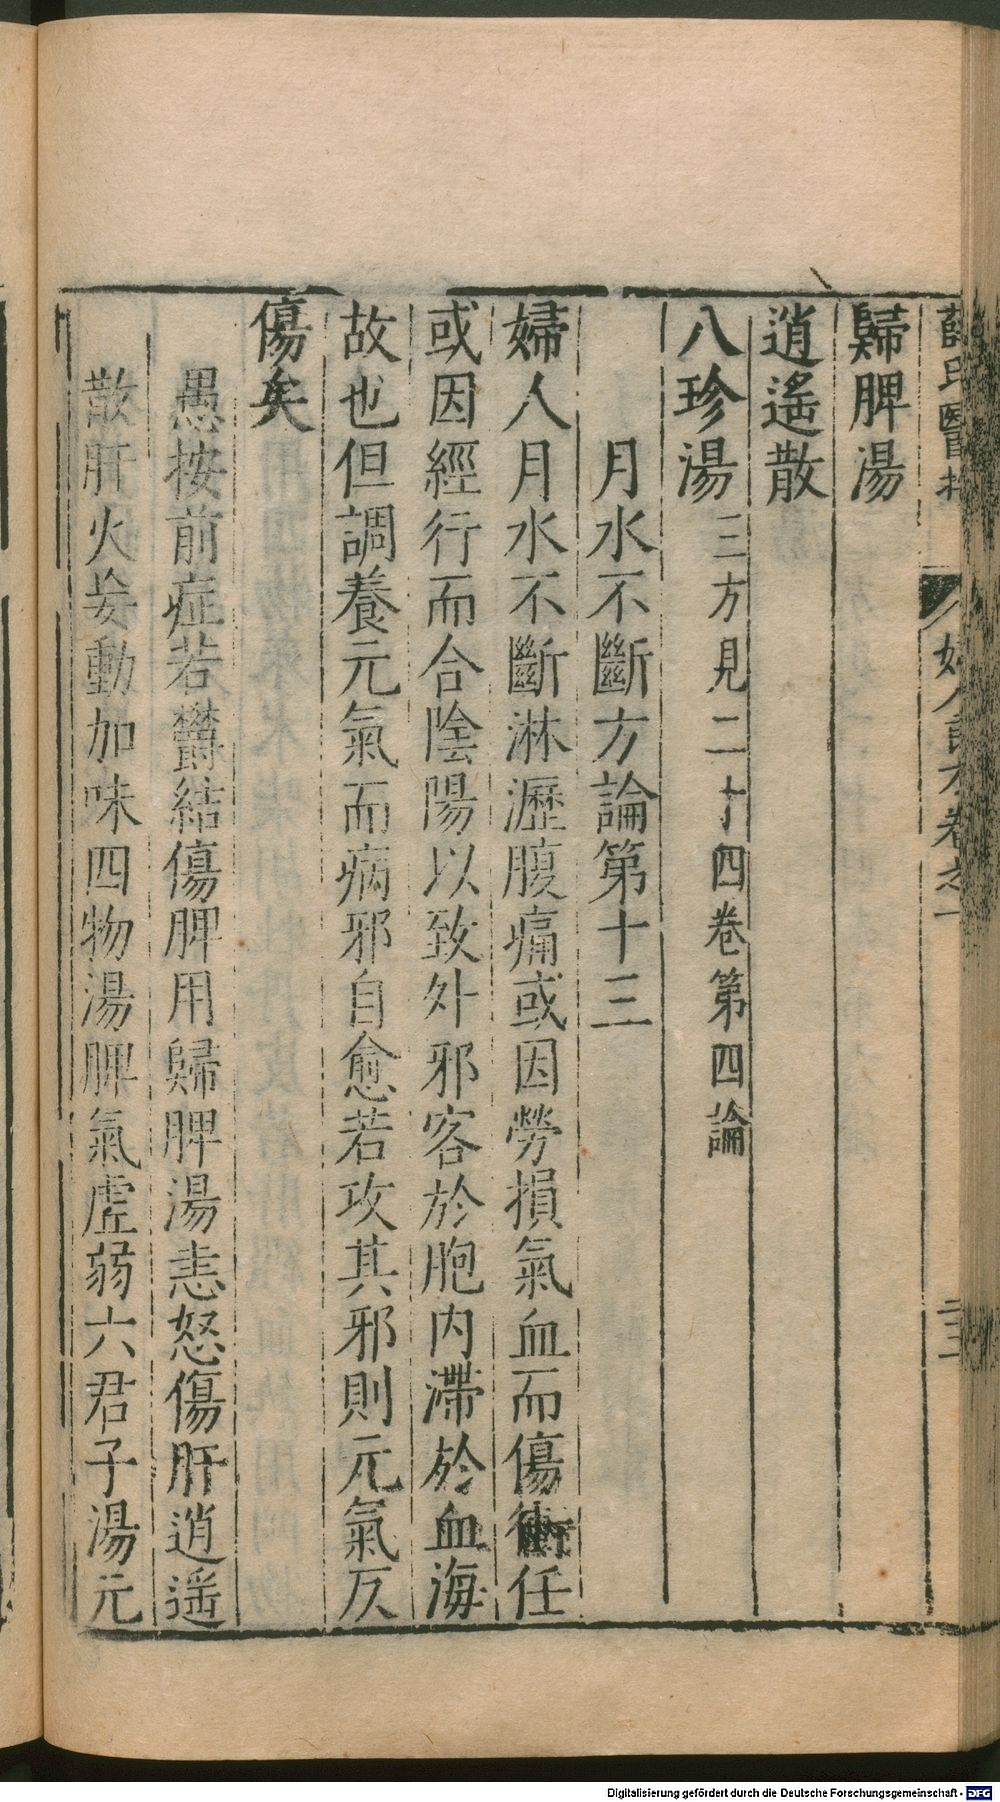 薛氏醫按 婦人良方卷之一 二三
歸脾湯
逍遙散
八珍湯 三方見二十四卷第四論
月水不斷方論第十三
婦人月水不斷淋瀝腹痛或因勞損氣血而傷衝任
或因經行而合陰陽以致外邪客於胞內滯於血海
故也但調養元氣而病邪自愈若攻其邪則元氣反
傷矣
愚按前症若鬱結傷脾用歸脾湯恚怒傷肝逍遙
散肝火妄動加味四物湯脾氣虛弱六君子湯元
Digitalisierung gefördert durch die Deutsche Forschungsgemeinschaft - DFG